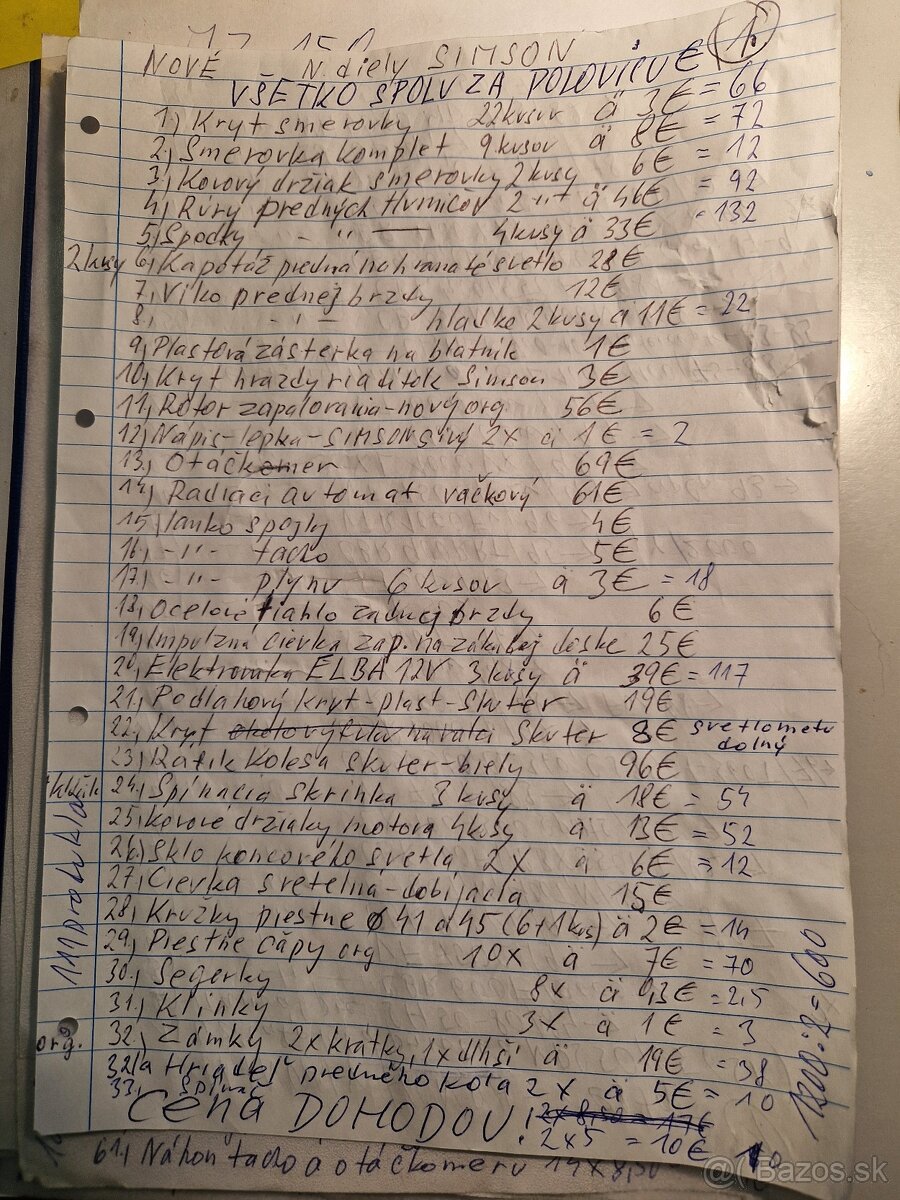 NOVÉ N. diely SIMSON 1,
VŠETKO SPOLU ZA POLOVICU €
1,) Kryt smerovky 22 kusov á 3€ = 66
2,) Smerovka komplet 9 kusov á 8€ = 72
3,) Kovový držiak smerovky 2 kusy 6€ = 12
4,) Rúry predných tlmičov 2 -"- á 46€ = 92
5,) Spodky - " - 4 kusy á 33€ = 132
2 kusy 6,) Kapotáž predná na hranaté svetlo 28€
7,) Víko prednej brzdy 12€
8, - " - hladké 2 kusy á 11€ = 22
9,) Plastová zásterka na blatník 1€
10,) Kryt hrazdy riadítok Simson 3€
11,) Rotor zapalovania - nový org 56€
12,) Nápis - lepka - SIMSON 2x á 1€ = 2
13,) Otáčkomer 69€
14,) Radiaci automat vačkový 61€
15,) lanko spojky 4€
16,) - " - tacho 5€
17,) - " - plynu 6 kusov á 3€ = 18
18,) Ocelové tiahlo zadnej brzdy 6€
19,) Impulzná cievka zap. na zákl. doske 25€
20,) Elektronika ELBA 12V 3 kusy á 39€ = 117
21,) Podlahový kryt - plast - Skuter 19€
22,) Kryt Skuter 8€ svetlometu
dolný
23,) Ráfik kolesa skuter - biely 96€
24,) Spínacia skrinka 3 kusy á 18€ = 54
25, kovové držiaky motora 4 kusy á 13€ = 52
26,) Sklo koncového svetla 2x á 6€ = 12
27,) Cievka svetelná - dobíjacia 15€
28,) Krúžky piestne ø 41 a 45 (6+1 kus) á 2€ = 14
29,) Piestne čapy org 10x á 7€ = 70
30,) Segerky 8x á 0,3€ = 2,5
31,) Klinky 3x á 1€ = 3
org. 32,) Zámky 2x krátky, 1x dlhší á 19€ = 38
32,a Hriadeľ predného kola 2x á 5€ = 10
33,
CENA DOHODOU!
2x5 = 10€
1200:2 = 600
61,) Náhon tacho a otáčkomeru 14x
@Bazos.sk